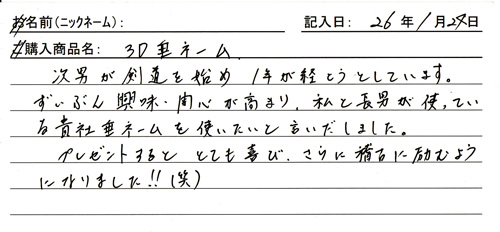 お名前(ニックネーム): 記入日: 26年1月27日
ご購入商品名: 3D垂ネーム.
次男が剣道を始め1年が経とうとしています。
ずいぶん興味・関心が高まり、私と長男が使ってい
る貴社垂ネームを使いたいと言いだしました。
プレゼントするととても喜び、さらに稽古に励むよう
になりました!!(笑)